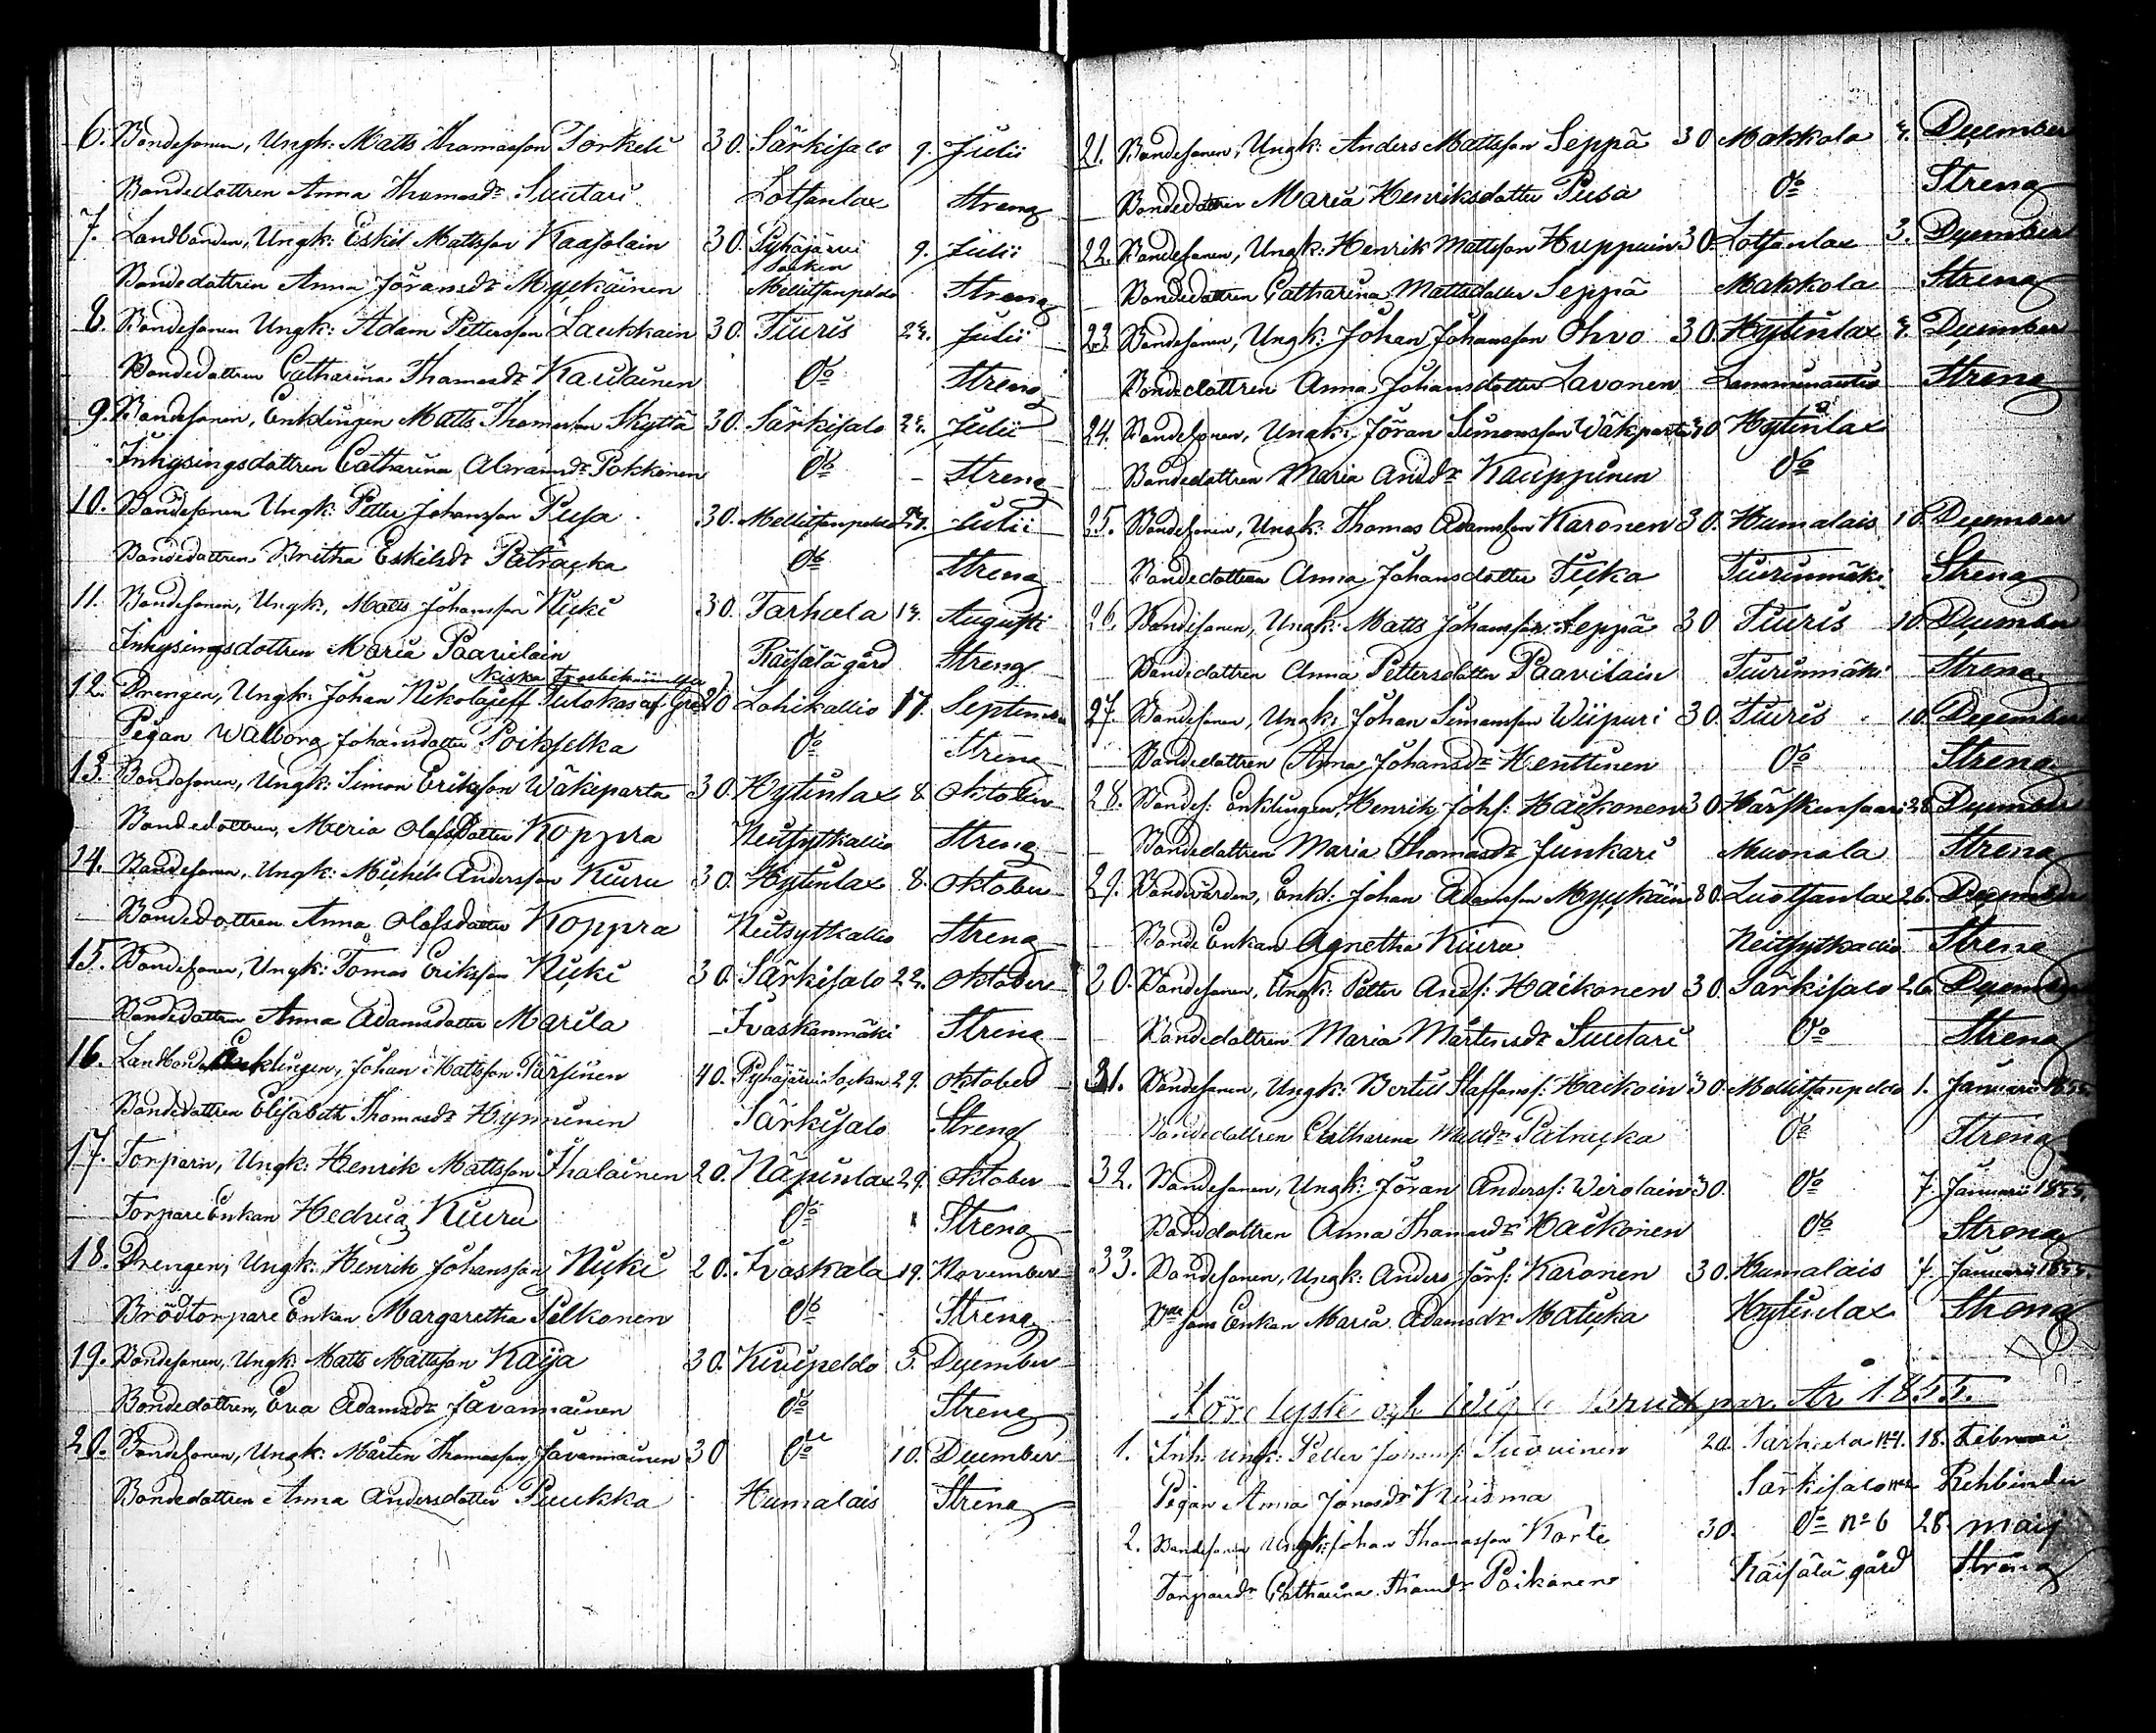 6. Bondesonen, Ungk: Matts Thomasson Torkeli 30. Särkisalo 9. Julii
Bondedottren Anna Thomasdr Suutari Lotsanlax Streng
7. Landbonden, Ungk: Eskil Mattsson Kaasolain 30. Pyhäjärvi Socken 9. Julii
Bondedottren Anna Jöransdr Myyckäinen Mellitsanpeldo Streng
8. Bondesonen Ungk: Adam Pettersson Laukkain 30. Tiuris 23. Julii
Bondedottren Catharina Thomasdr Kaulainen Do Streng
9. Bondesonen, Enklingen Matts Thomasson Skyttä 30. Särkisalo 23. Julii
Inhysingsdottren Catharina Abramsdr Pokkinen Do Streng
10. Bondesonen Ungk: Petter Johansson Pusa 30. Mellitsanpeldo Julii
Bondedottren Britha Eskilsdr Patraçka Do Streng
11. Bondesonen, Ungk. Matts Johansson Nicki 30. Tarhala 13. Augusti
Inhysingsdottren Maria Paavilain Räisälä gård Streng
12. Drengen, Ungk: Johan Nikolajeff Tulokas af Grek 20 Lohikallio 17. September
Niska Trosbekännelsen
Pigan Walborg Johansdotter Poikselka Do Streng
13. Bondesonen, Ungk: Simon Eriksson Wäkiparta 30. Hytinlax 8. Oktober
Bondedottren, Maria Olofsdotter Koppra Neitsytkallio Streng
14. Bondesonen, Ungk: Michil Andersson Kiuru 30. Hytinlax 8. Oktober
Bondedottren Anna Olofsdotter Koppra Neitsytkallio Streng
15. Bondesonen, Ungk: Tomas Eriksson Nicki 30. Särkisalo 22. Oktober
Bondedottren Anna Adamsdotter Marila Ivaskanmäki Streng
16. Landbond Enklingen, Johan Mattsson Pärsinen 40. Pyhäjärvi Socken 29. Oktober
Bondedottren Elisabeth Thomasdr Hynninen Särkisalo Streng
17. Torparen, Ungk: Henrik Mattsson Ihalainen 20. Näpinlax 29. Oktober
Torpare Enkan Hedvig Kiuru Do Streng
18. Drengen, Ungk: Henrik Johansson Nicki 20. Ivaskala 19. November
Brödtorpare Enkan Margaretha Pelkonen Do Streng
19. Bondesonen, Ungk: Matts Mattsson Kaija 30. Kivipeldo 3. December
Bondedottren, Eva Adamsdr Javanainen Do Streng
20. Bondesonen, Ungk: Mårten Thomasson Javanainen 30 Do 10. December
Bondedottren Anna Andersdotter Puukka Humalais Streng
21. Bondesonen, Ungk: Anders Mattsson Seppä 30 Makkola 3. December
Bondedottren Maria Henriksdotter Pusa Do Streng
22. Bondesonen, Ungk: Henrik Mattsson Huppuin 30. Lotsanlax 3. December
Bondedottren Catharina Mattsdotter Seppä Makkola Streng
23. Bondesonen, Ungk: Johan Johansson Ohvo 30. Hytinlax 3. December
Bondedottren Anna Johansdotter Lavonen Streng
24. Bondesonen, Ungk: Jöran Simonsson Wäkparta 30 Hytinlax
Bondedottren Maria Andsdr Kauppinen Do
25. Bondesonen, Ungk: Thomas Adamsson Karonen 30. Humalais 10. December
Bondedottren Anna Johansdotter Ticka Tiurinmäki Streng
26. Bondesonen, Ungk: Matts Johansson Seppä 30 Tiuris 10. December
Bondedottren Anna Pettersdotter Paavilain Tiurinmäki Streng
27. Bondesonen, Ungk: Johan Simonsson Wiipuri 30. Tiuris 10. December
Bondedottren Anna Johansdr Henttinen Do Streng
28. Bondes: Enklingen, Henrik Johs: Haikonen 30. Härskensaari 26. December
Bondedottren Maria Thomasdr Junkari Muonala Streng
29. Bondevärden, Enkl: Johan Adamsson Myyckäin 80. Luotsanlax 26. December
Bonde Enkan Agnetha Kiuru Neitsytkallio Streng
20. Bondesonen, Ungk: Petter Ands: Haikonen 30. Särkisalo 26. December
Bondedottren Maria Mårtensdr Suutari Do Streng
31. Bondesonen, Ungk: Bertill Staffans: Haikoin 30. Mellitsanpeldo 1. Januari 1855.
Bondedottren Catharina Mattsdr Patruçka Do Streng
32. Bondesonen, Ungk: Jöran Anderss: Wirolain 30. Do 7. Januari 1855.
Bondedottren Anna Thomasdr Haikonen Do Streng
33. Bondesonen, Ungk: Anders Jörs: Karonen 30. Humalais 7. Januari 1855.
Bde sons Enkan Maria Adamsdr Matuka Hytinlax Streng
Förelyste och Wigde Brudpar År 1855.
1. Inh: Ungk: Petter Suominen 20. 18. Februari
Pigan Anna Jonasdr Kuisma Särkisalo Rehbinder
2. Bondesonen Ungk: Johan Thomasson Korte 30. Do No 6 28. Maij
Torparedr Catharina Thomdr Poikonen Räisälä gård Streng